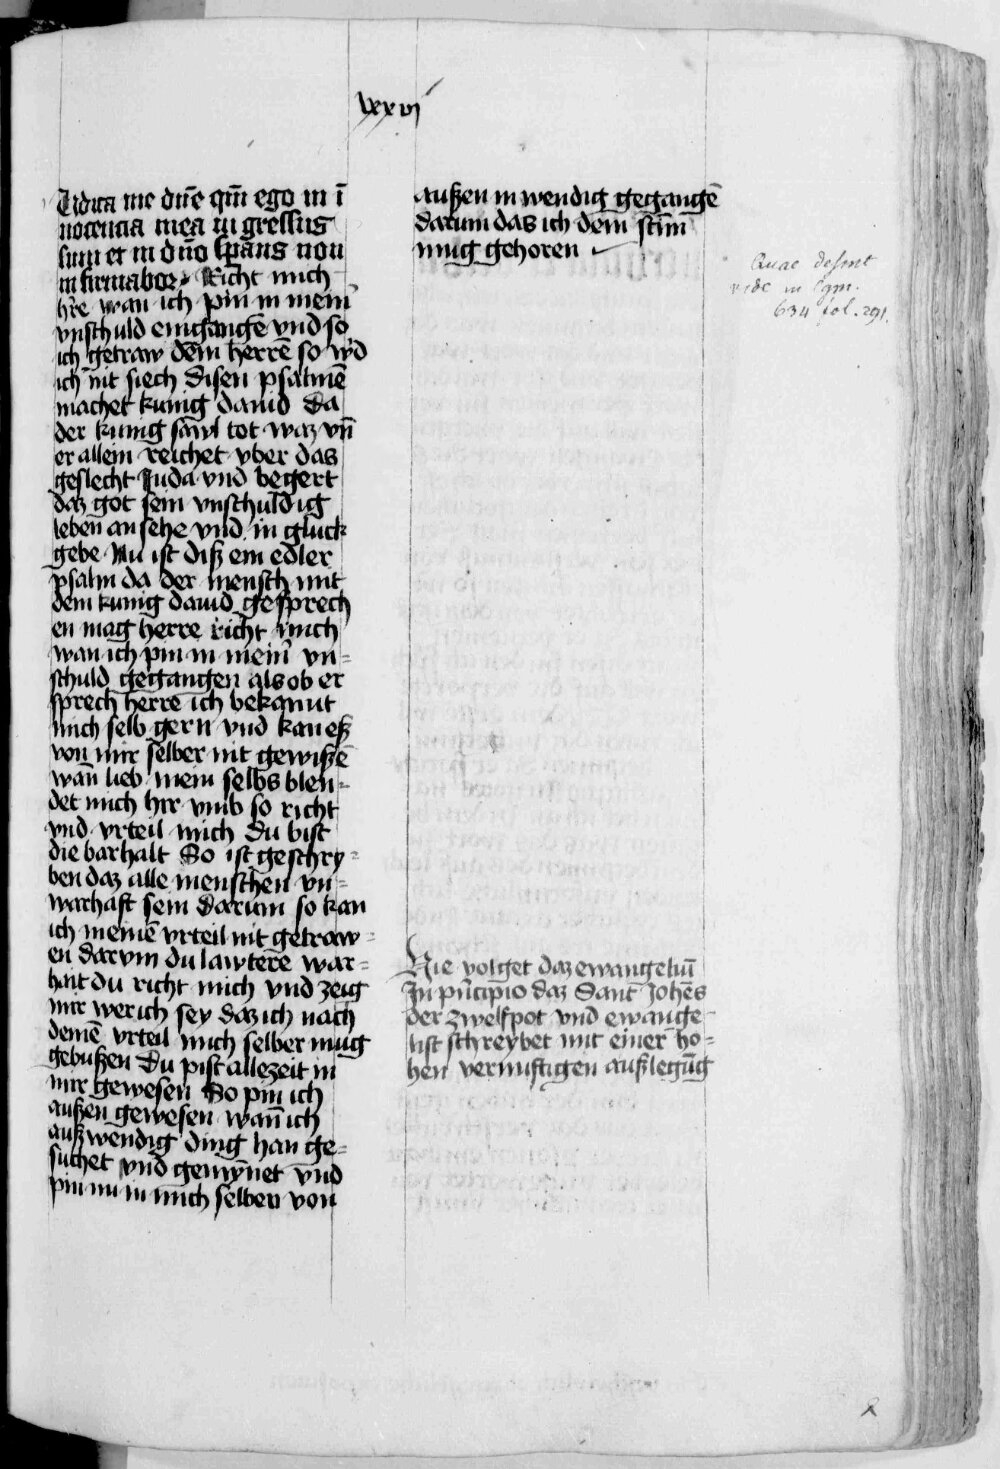 lxxvi
Iudica me dn̄e qm̄ ego in ī
nocencia mea in gressus
sum et in dn̄o spans non
in firmabor Richt mich
h're wan ich pin in mein̄
vnschuld eingangē vnd so
ich getraw dem herrē so wᷣd
ich nit siech disen psalmē
machet kunig dauid Da
der kunig sawl tot waz vn̄
er allein reichet vber das
geslecht Juda vnd begert
daz got sein vnschuldig
leben an sehe vnd in gluck
gebe Nu ist diß ein edler
psalm da der mensch mit
dem kunig dauid gesprech
en mag herre richt mich
wan ich pin in mein̄ vn=
schuld gegangen als ob er
sprech herre ich bekannt
mich selb gern vnd kan eß
von mir selber nit gewißē
wan̄ lieb mein selbs blen=
det mich hrr vmb so richt
vnd vrteil mich du bist
die barhait So ist geschry=
ben daz alle menschen vn=
warhaft sein Darum so kan
ich meinē vrteil nit getraw=
en darvm du lawterē war=
hait du richt mich vnd zeig
mir wer ich sey daz ich nach
deinē vrteil mich selber mug
gebußen Du pist allezeit in
mir gewesen So pin ich
außen gewesen wan̄ ich
außwendig ding han ge=
suchet vnd gemȳnet vnd
pin nu in mich selber von
außen inwendig gegangē
darum das ich dem̄ stim̄
mug gehoren
Quae desunt
vide in Cgm.
634 fol. 291.
Hie volget daz ewangeliu᷑
In pn̄cipio daz Sant Johēs
der zwelfpot vnd ewange
list schreybet mit einer ho=
hen vernuftigen außlegu᷑g